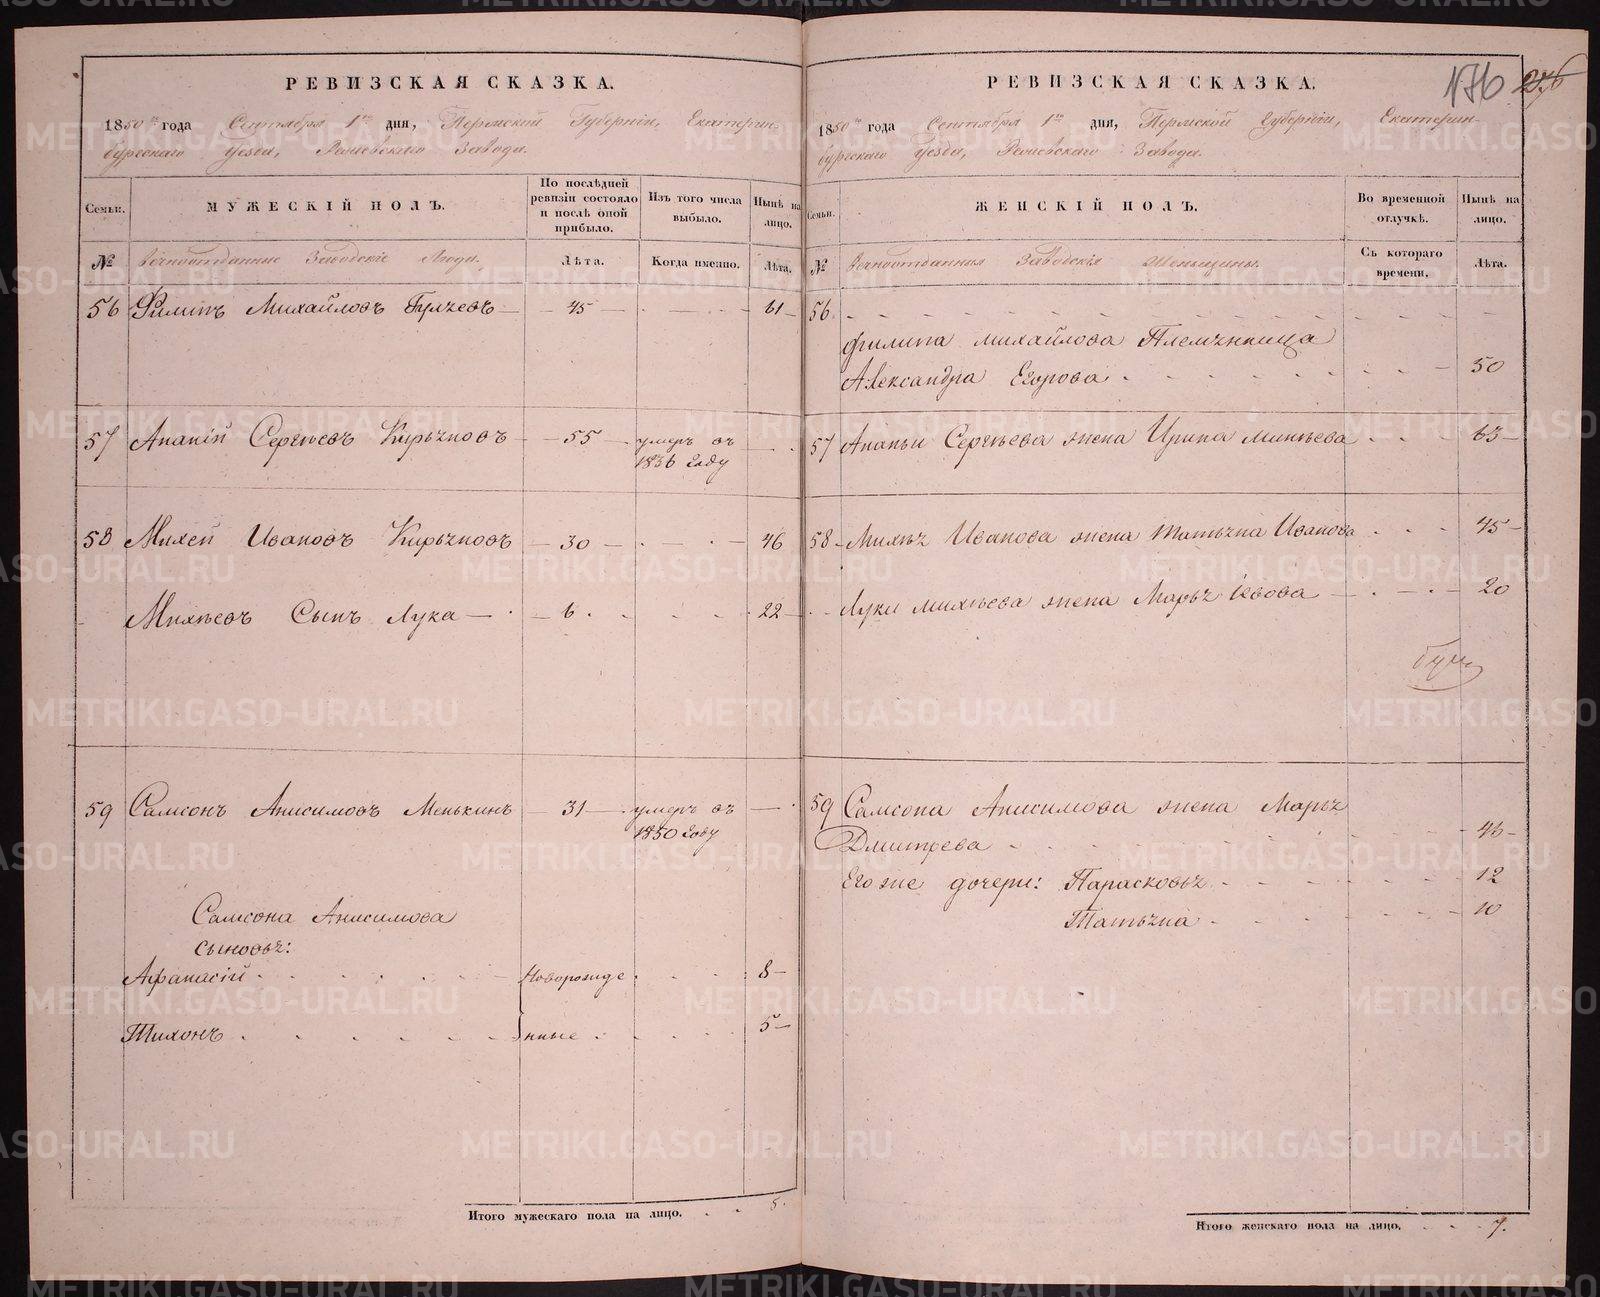 РЕВИЗСКАЯ СКАЗКА.
1850го года Сентября 1го дня, Пермской Губернiи, Екатерин-
бургскаго Уезда, Режевскаго Завода.
Семьи. МУЖЕСКIЙ ПОЛЪ. По послѣдней ревизiи состояло и послѣ оной прибыло. Изъ того числа выбыло. Нынѣ на лицо.
№ Вечноотданные Заводскiе Люди. Лѣта. Когда именно. Лѣта.
56 Филипъ Михайловъ 45 61
57 Ананiй Сергѣевъ 55 умеръ въ
1836 году
58 Михей Ивановъ 30 46
Михѣевъ Сынъ Лука 6 22
59 Самсонъ Анисимовъ Менькинъ 31 умеръ въ
1850 году
Самсона Анисимова
сыновья:
Афанасiй Новорожде 8
Тихонъ нные 5
Итого мужескаго пола на лицо. 5.
176 276
РЕВИЗСКАЯ СКАЗКА.
1850го года Сентября 1го дня, Пермской Губернiи, Екатерин-
бургскаго Уезда, Режевскаго Завода.
Семьи. ЖЕНСКIЙ ПОЛЪ. Во временной отлучкѣ. Нынѣ на лицо.
№ Вечноотданныя Заводскiя Женьщины. Съ котораго времени. Лѣта.
56
Филипа Михайлова Племянница
Александра Егорова 50
57 Ананьи Сергѣева жена Ирина Минѣева 63
58 Михѣя Иванова жена Татьяна Иванова 45
Луки Михѣева жена Марья 20
59 Самсона Анисимова жена Марья
Дмитрева 46
Его же дочери: Парасковья 12
Татьяна 10
Итого женскаго пола на лицо. 7.
METRIKI.GASO-URAL.RU